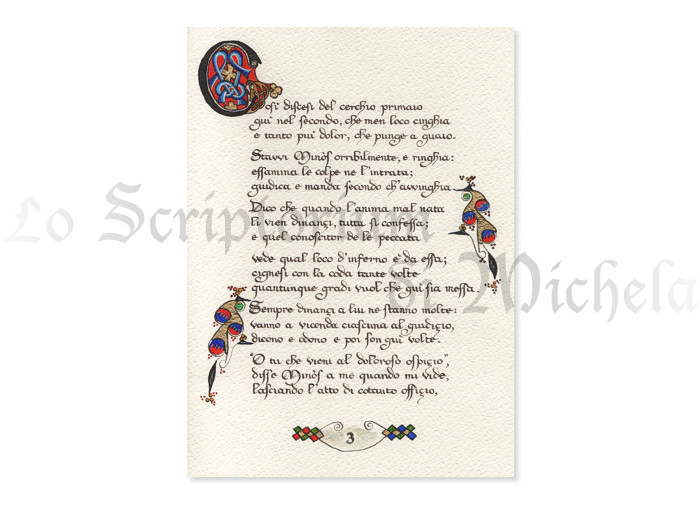 Cosi discesi del cerchio primaio
giu nel secondo, che men loco cinghia
e tanto piu' dolor, che punge a guaio.
Stavvi Minòs orribilmente, e ringhia:
essamina le colpe ne l'intrata;
giudica e manda secondo ch'avvinghia
Dico che quando l'anima mal nata
li vien dinançi, tutta si confessa;
e quel conoscitor de le peccata
vede qual loco d'inferno è da essa;
cignesi con la coda tante volte
quantunque gradi vuol che giù sia messa.
Sempre dinançi a lui ne stanno molte:
vanno a vicenda ciascuna al giudiçio,
dicono e odono e poi son giù volte.
"O tu che vieni al doloroso ospiçio",
disse Minòs a me quando mi vide,
lasciando l'atto di cotanto offiçio,
3
Lo Scriptorium
di Michela